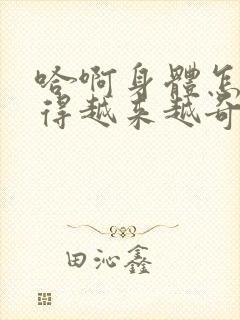 哈啊身體怎
得越来越奇
田沁鑫